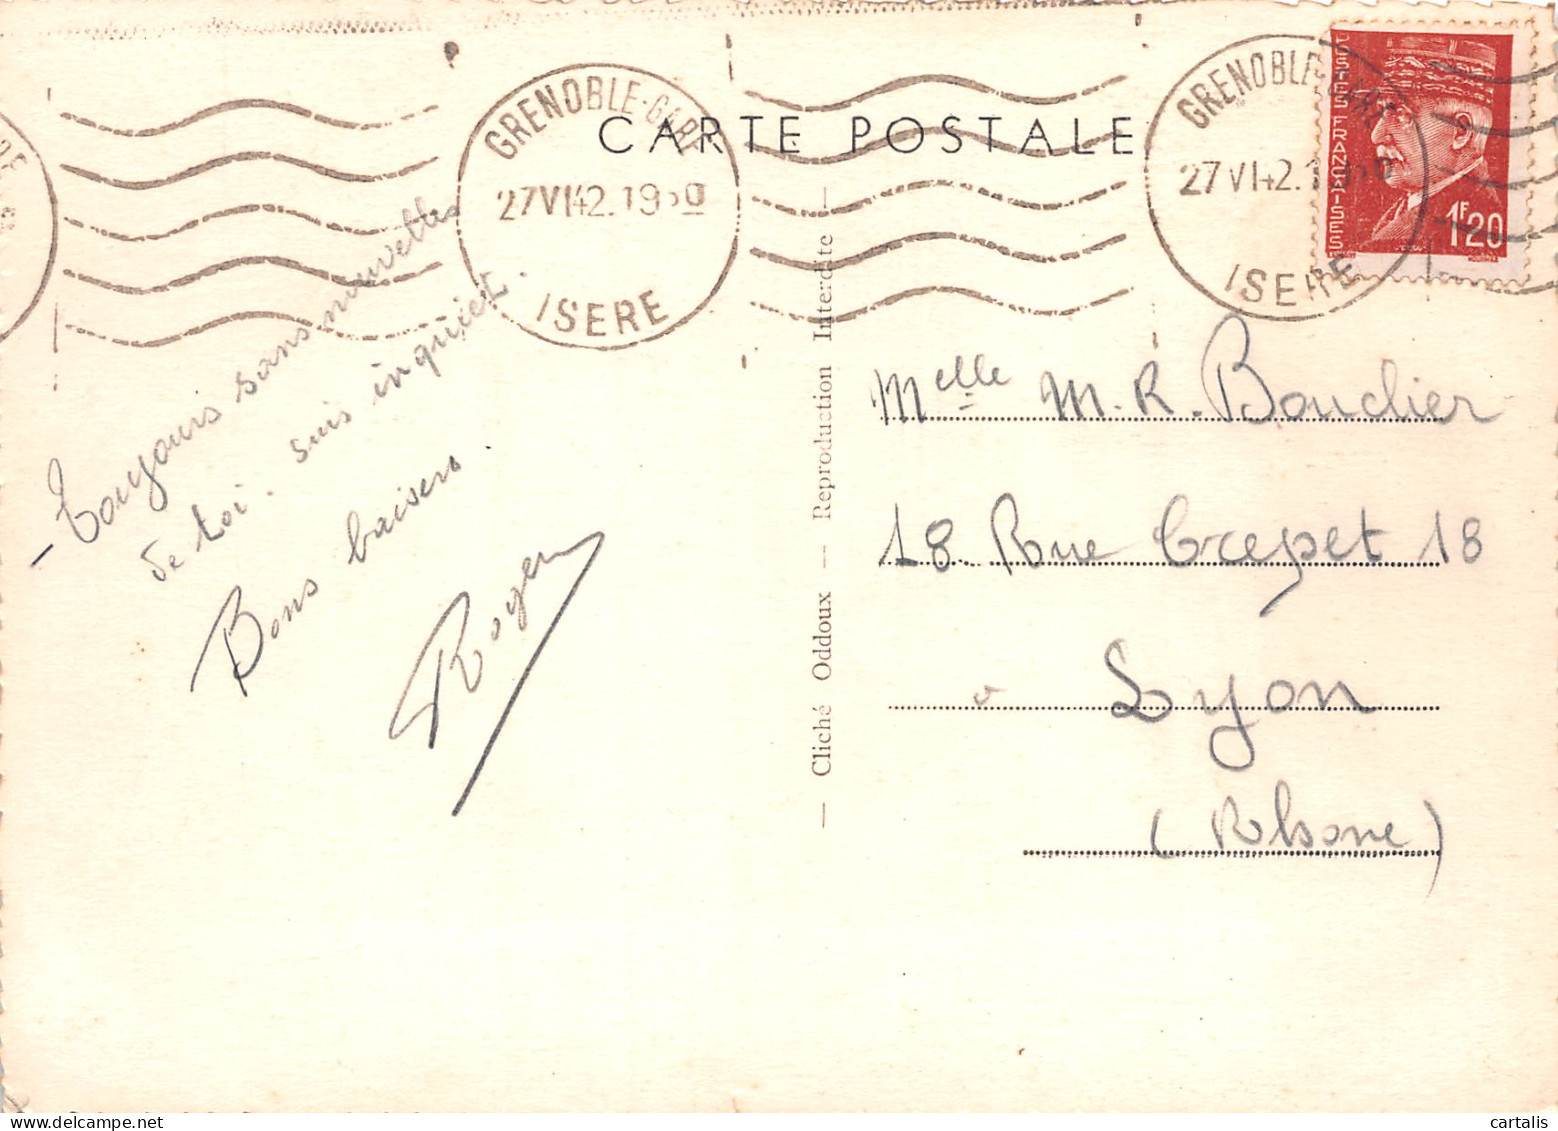 CARTE POSTALE
GRENOBLE-GARE
27 VI 42. 1930
ISERE
GRENOBLE-GARE
27 VI 42. 1930
ISERE
POSTES FRANÇAISES
1F20
- Toujours sans nouvelles
de toi. suis inquiet.
Bons baisers.
Roger
— Cliché Oddoux — Reproduction Interdite —
Melle M. R. Bouclier
18 Rue Crepet 18
à Lyon
(Rhone)
cartalis